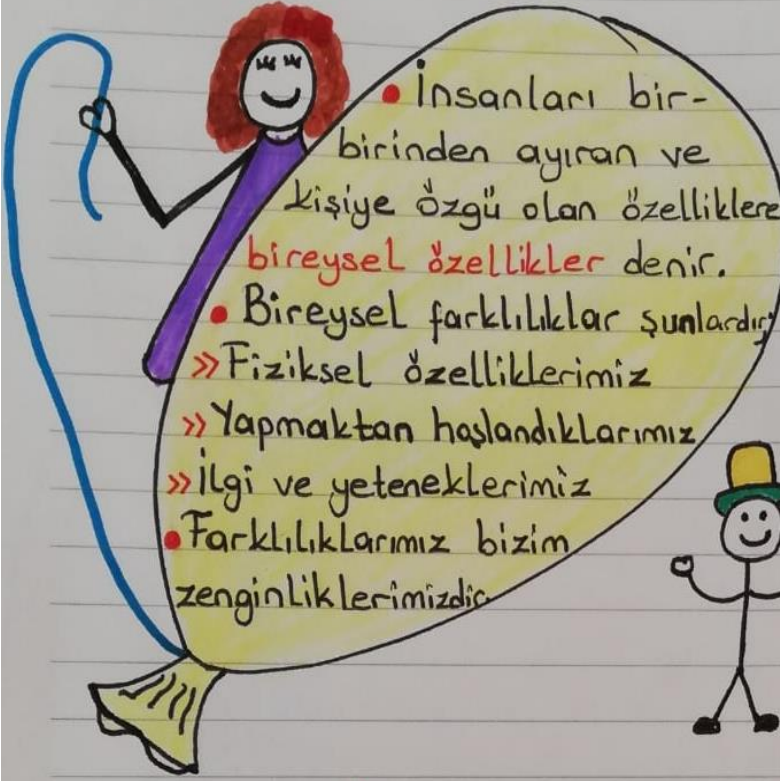 • İnsanları bir-
birinden ayıran ve
kişiye özgü olan özelliklere
bireysel özellikler denir.
• Bireysel farklılıklar şunlardır;
» Fiziksel özelliklerimiz
» Yapmaktan hoşlandıklarımız
» İlgi ve yeteneklerimiz
• Farklılıklarımız bizim
zenginliklerimizdir.